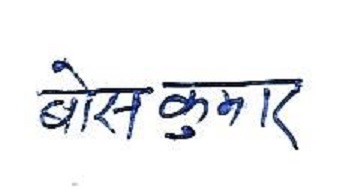 बोस कुमार